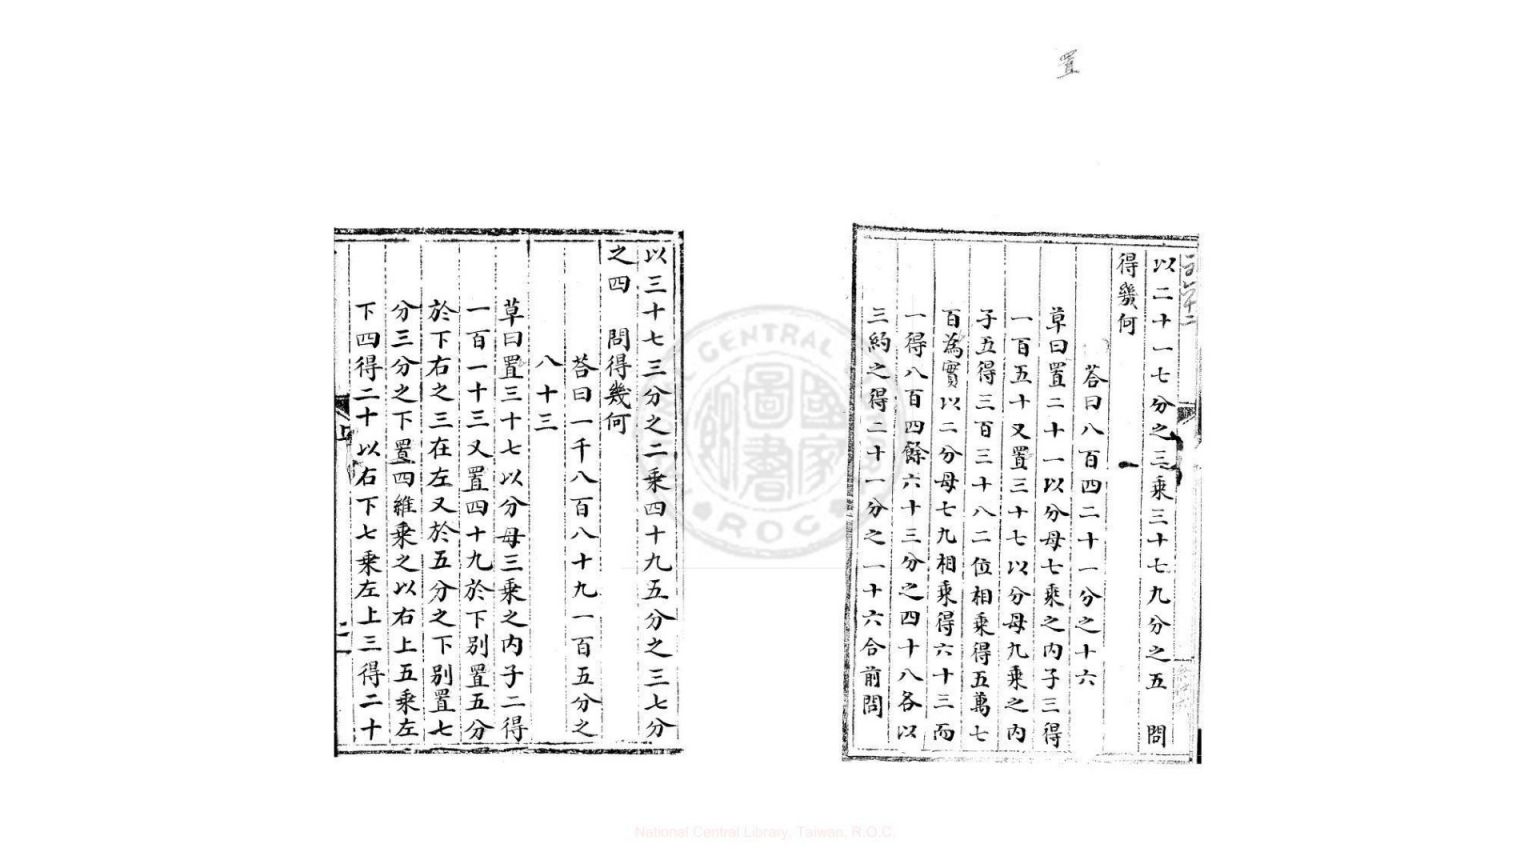 置
以二十一七分之三乘三十七九分之五　問
得幾何
荅曰八百四二十一分之十六
草曰置二十一以分母七乘之内子三得
一百五十又置三十七以分母九乘之内
子五得三百三十八二位相乘得五萬七
百為實以二分母七九相乘得六十三而
一得八百四餘六十三分之四十八各以
三約之得二十一分之一十六合前問
以三十七三分之二乘四十九五分之三七分
之四　問得幾何
荅曰一千八百八十九一百五分之
八十三
草曰置三十七以分母三乘之内子二得
一百一十三又置四十九於下别置五分
於下右之三在左又於五分之下别置七
分三分之下置四維乘之以右上五乘左
下四得二十以右下七乘左上三得二十
CENTRAL
國家圖書館
ROC
National Central Library, Taiwan, R.O.C.